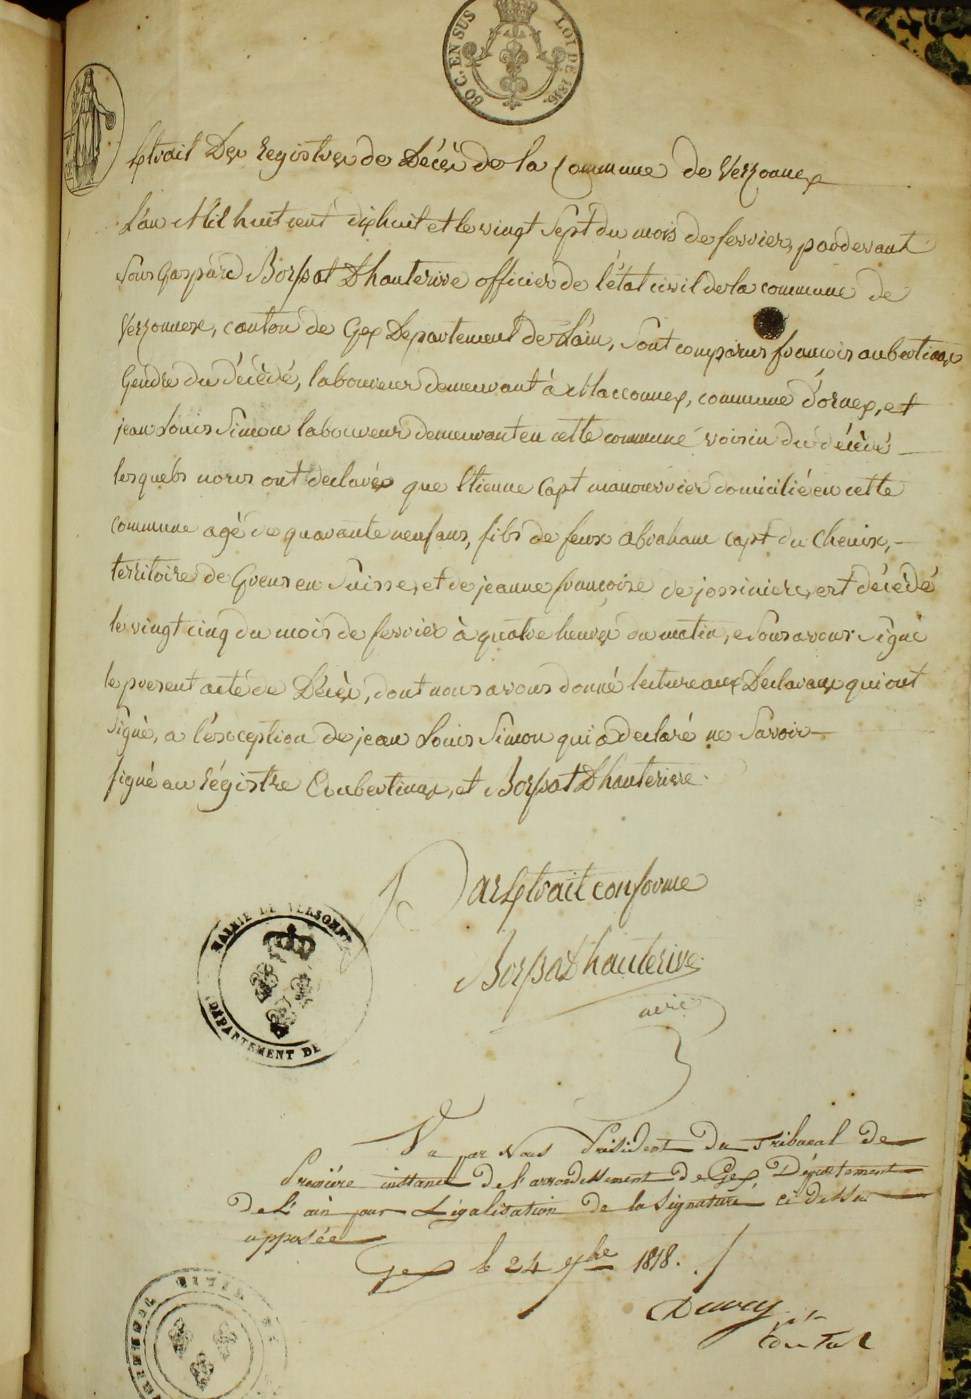 60 C. EN SUS LOI DE 1816.
Extrait Des Registres de Décès de la Commune de Verzonnex
L'an Mil huit cent dix huit et le vingt Sept du mois de fevrier, pardevant
Nous Gaspard Borssat Dhauterive officier de l'état civil de la commune de
Verzonnex, canton de Gex Departement de L'ain, Sont comparus francois aubertinex
Gendre du décèdé, laboureur demeurant à Maconnex, commune d'ornex, et
jean Louis Simon laboureur demeurant en cette commune voisin du décèdé
lesquels nous ont declarés que Etienne Capt manouvrier domicilié en cette
commune agé de quarante neuf ans, fils de feux abraham Capt du Chenix,
territoire de Gvens en Suisse, et de jeanne françoise de jossiniere, est décèdé
le vingt cinq du mois de fevrier à quatre heures du matin, e Nous avons Signé
le present acte de Décès, dont nous avons donné lecture aux Declarans qui ont
Signé, a l'exception de jean Louis Simon qui a declaré ne Savoir
signé au régistre Aubertinex, et Borssat Dhauterive.
Par Extrait conforme
Borssat Dhauterive
MAIRIE DE VERSONNEX
DEPARTEMENT DE
Vu par Nous Président du Tribunal de
Première instance de l'arrondissement de Gex Département
De L'ain pour Légalisation de la Signature ci dessus
apposée
Gex le 24 9bre 1818.